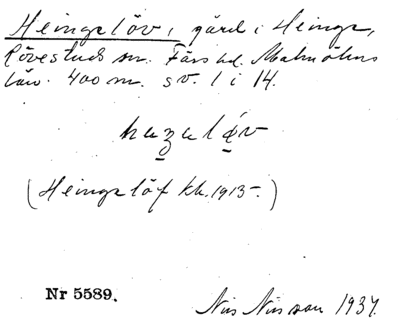 Heingslöv, gård i Heinge,
Rövestads sn. Färs hd. Malmöhus
län. 400 m. sv. 1 i 14.
(Heingslöf kk. 1915.)
Nr 5589.
Nils Nilsson 1937.